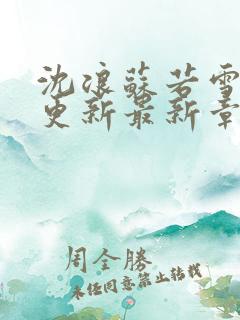 沈浪蘇若雪
更新最新章
周全勝
未经同意禁止转载